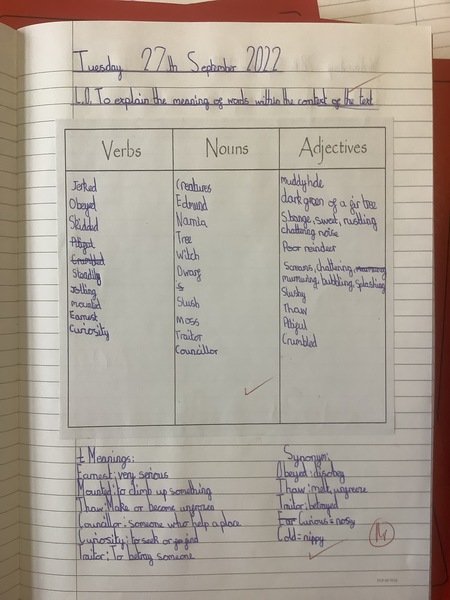 Tuesday 27th September 2022
L.O. To explain the meaning of words within the context of the text
Verbs
Jerked
Obeyed
Skidded
Pitiful
Crumbled
Steadily
Jolting
mounted
Earnest
Curiosity
Nouns
Creatures
Edmund
Narnia
Tree
Witch
Dwarf
S
Slush
Moss
Traitor
Councillor
Adjectives
muddy hole
dark green of a fir tree
Strange, sweat, rustling
chattering noise
Poor reindeer
Screams, chattering,
murmuring, bubbling, splashing
Slushy
Thaw
Pitiful
Crumbled
Meanings:
Earnest: very serious
Mounted: to climb up something
Thaw: Make or become unfrozen
Councillor: someone who help a place
Curiosity: to seek or go find
Traitor: To betray someone
Synonym:
Obeyed: disobey
Thaw: melt, unfreeze
Traitor: betrayed
Curious = nosey
Cold = nippy